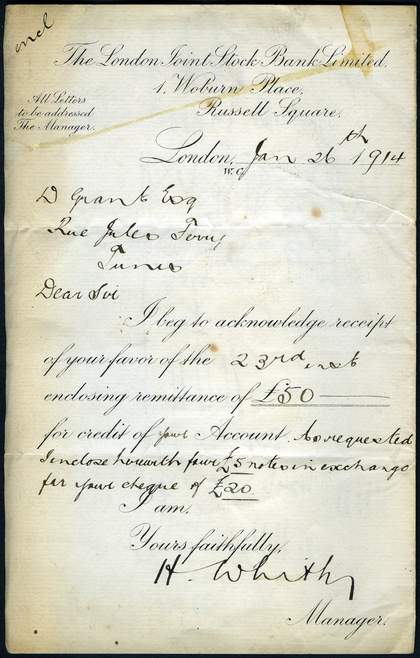 encl
The London Joint Stock Bank Limited.
1, Woburn Place,
Russell Square.
All Letters
to be addressed
The Manager.
London, Jan 26th 1914
W.C.
D Grant Esq
Rue Jules Ferry
Tunis
Dear Sir
I beg to acknowledge receipt
of your favor of the 23rd inst
enclosing remittance of £50
for credit of your Account. As requested
I enclose herewith four £5 notes in exchange
for your cheque of £20
I am,
Yours faithfully,
H. Whitby
Manager.